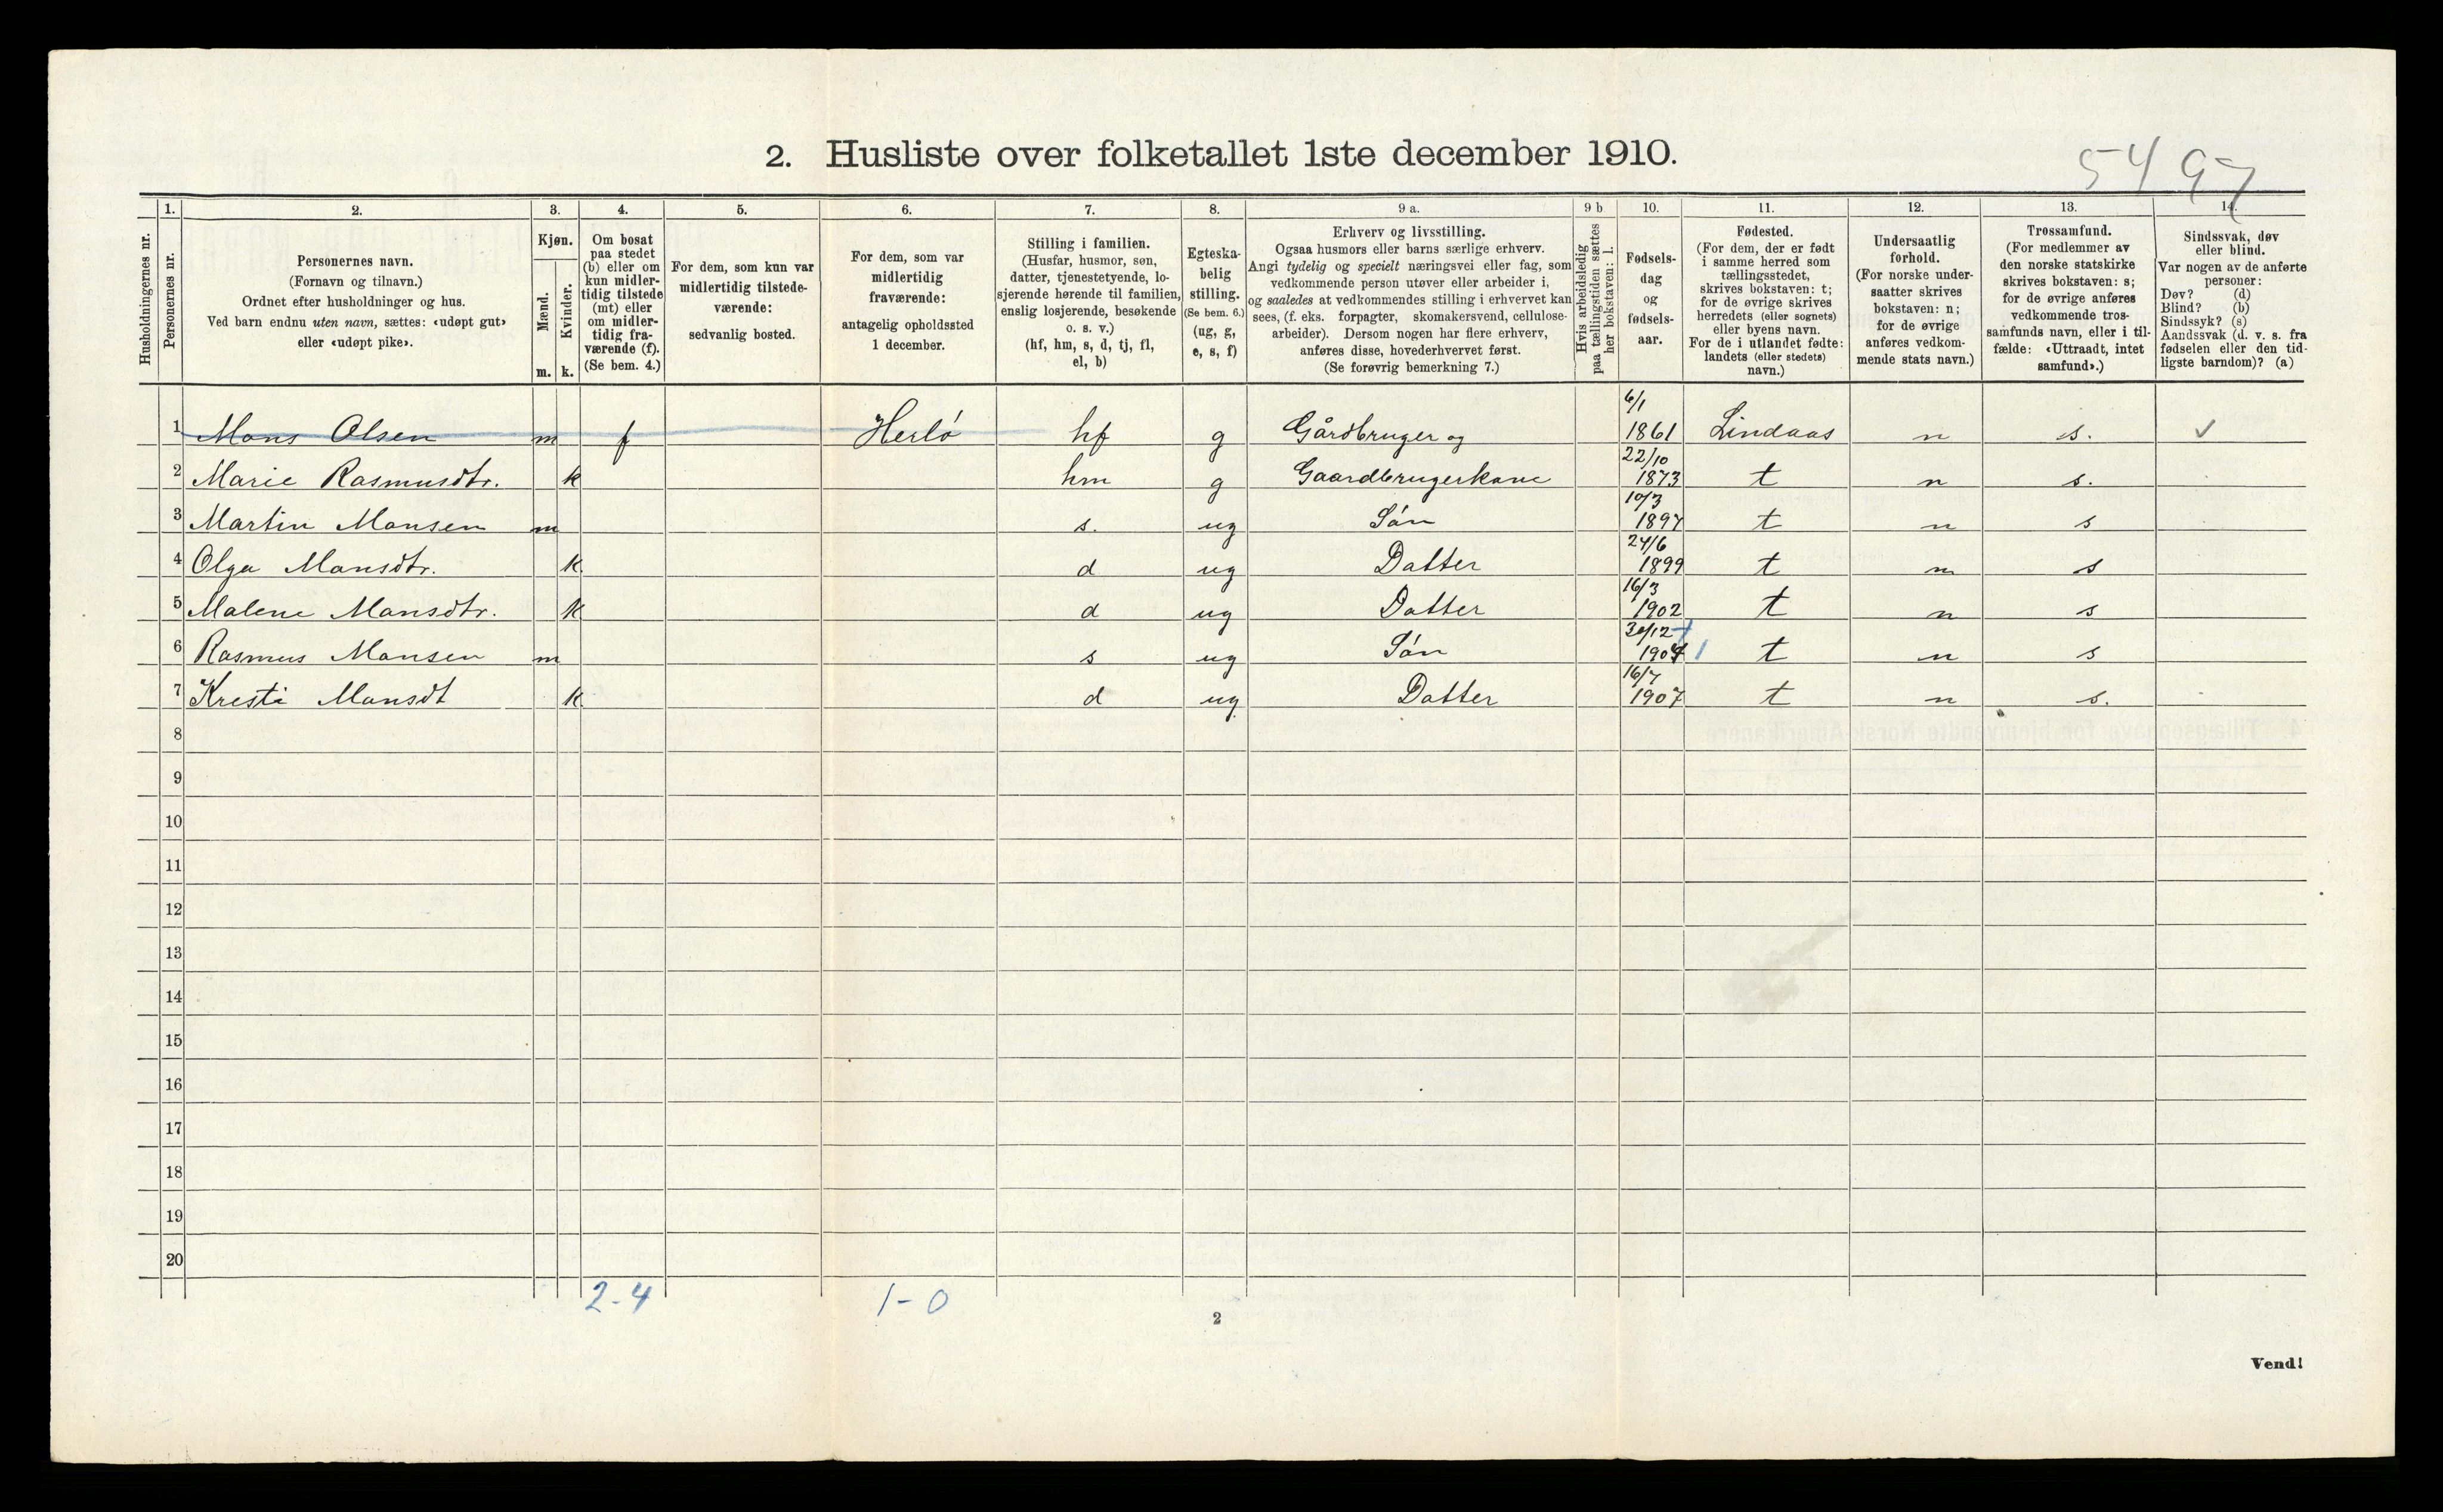 2. Husliste over folketallet 1ste december 1910.
5497
Husholdningernes nr.
1. Personernes nr.
2. Personernes navn.
(Fornavn og tilnavn.)
Ordnet efter husholdninger og hus.
Ved barn endnu uten navn, sættes: «udøpt gut»
eller «udøpt pike».
3. Kjøn.
Mænd. m.
Kvinder. k.
4. Om bosat
paa stedet
(b) eller om
kun midler-
tidig tilstede
(mt) eller
om midler-
tidig fra-
værende (f).
(Se bem. 4.)
5. For dem, som kun var
midlertidig tilstede-
værende:
sedvanlig bosted.
6. For dem, som var
midlertidig
fraværende:
antagelig opholdssted
1 december.
7. Stilling i familien.
(Husfar, husmor, søn,
datter, tjenestetyende, lo-
sjerende hørende til familien,
enslig losjerende, besøkende
o. s. v.)
(hf, hm, s, d, tj, fl,
el, b)
8. Egteska-
belig
stilling.
(Se bem. 6.)
(ug, g,
e, s, f)
9 a. Erhverv og livsstilling.
Ogsaa husmors eller barns særlige erhverv.
Angi tydelig og specielt næringsvei eller fag, som
vedkommende person utøver eller arbeider i,
og saaledes at vedkommendes stilling i erhvervet kan
sees, (f. eks. forpagter, skomakersvend, cellulose-
arbeider). Dersom nogen har flere erhverv,
anføres disse, hovederhvervet først.
(Se forøvrig bemerkning 7.)
9 b Hvis arbeidsledig
paa tællingstiden sættes
her bokstaven: l.
10. Fødsels-
dag
og
fødsels-
aar.
11. Fødested.
(For dem, der er født
i samme herred som
tællingsstedet,
skrives bokstaven: t;
for de øvrige skrives
herredets (eller sognets)
eller byens navn.
For de i utlandet fødte:
landets (eller stedets)
navn.)
12. Undersaatlig
forhold.
(For norske under-
saatter skrives
bokstaven: n;
for de øvrige
anføres vedkom-
mende stats navn.)
13. Trossamfund.
(For medlemmer av
den norske statskirke
skrives bokstaven: s;
for de øvrige anføres
vedkommende tros-
samfunds navn, eller i til-
fælde: «Uttraadt, intet
samfund».)
14. Sindssvak, døv
eller blind.
Var nogen av de anførte
personer:
Døv? (d)
Blind? (b)
Sindssyk? (s)
Aandssvak (d. v. s. fra
fødselen eller den tid-
ligste barndom)? (a)
1 Mons Olsen m f Herlø hf g Gårdbruger og 6/1 1861 Lindaas n s. ✓
2 Marie Rasmusdtr. k hm g Gaardbrugerkone 22/10 1873 t n s.
3 Martin Monsen m s. ug Søn 10/3 1897 t n s
4 Olga Monsdtr. k d ug Datter 24/6 1899 t n s
5 Malene Monsdtr. k d ug Datter 16/3 1902 t n s
6 Rasmus Monsen m s ug Søn 30/12 1904 t n s
7 Kresti Monsdt k d ug Datter 16/7 1907 t n s.
8
9
10
11
12
13
14
15
16
17
18
19
20
2-4 1-0
2
Vend!